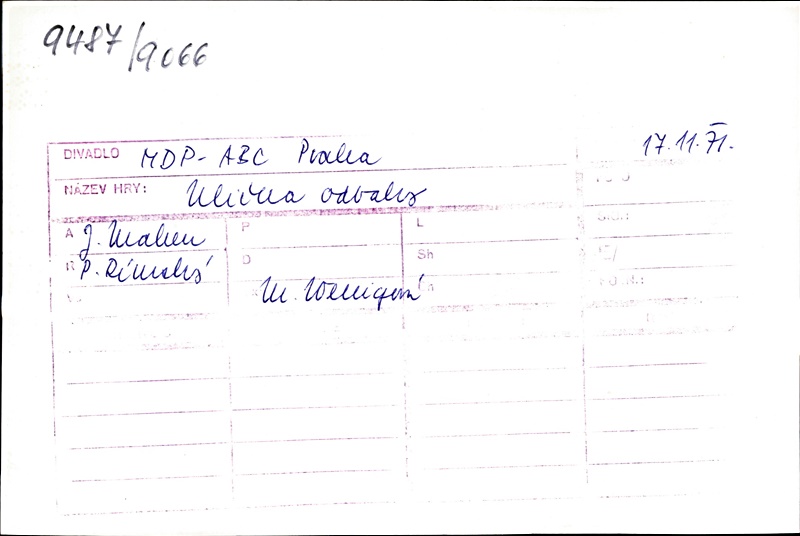 9487/9066
17.11.71.
DIVADLO MDP-ABC Praha
NÁZEV HRY: Ulička odvahy
A J. Mahen P L
R P. Rímský D Sh
M. Wenigová